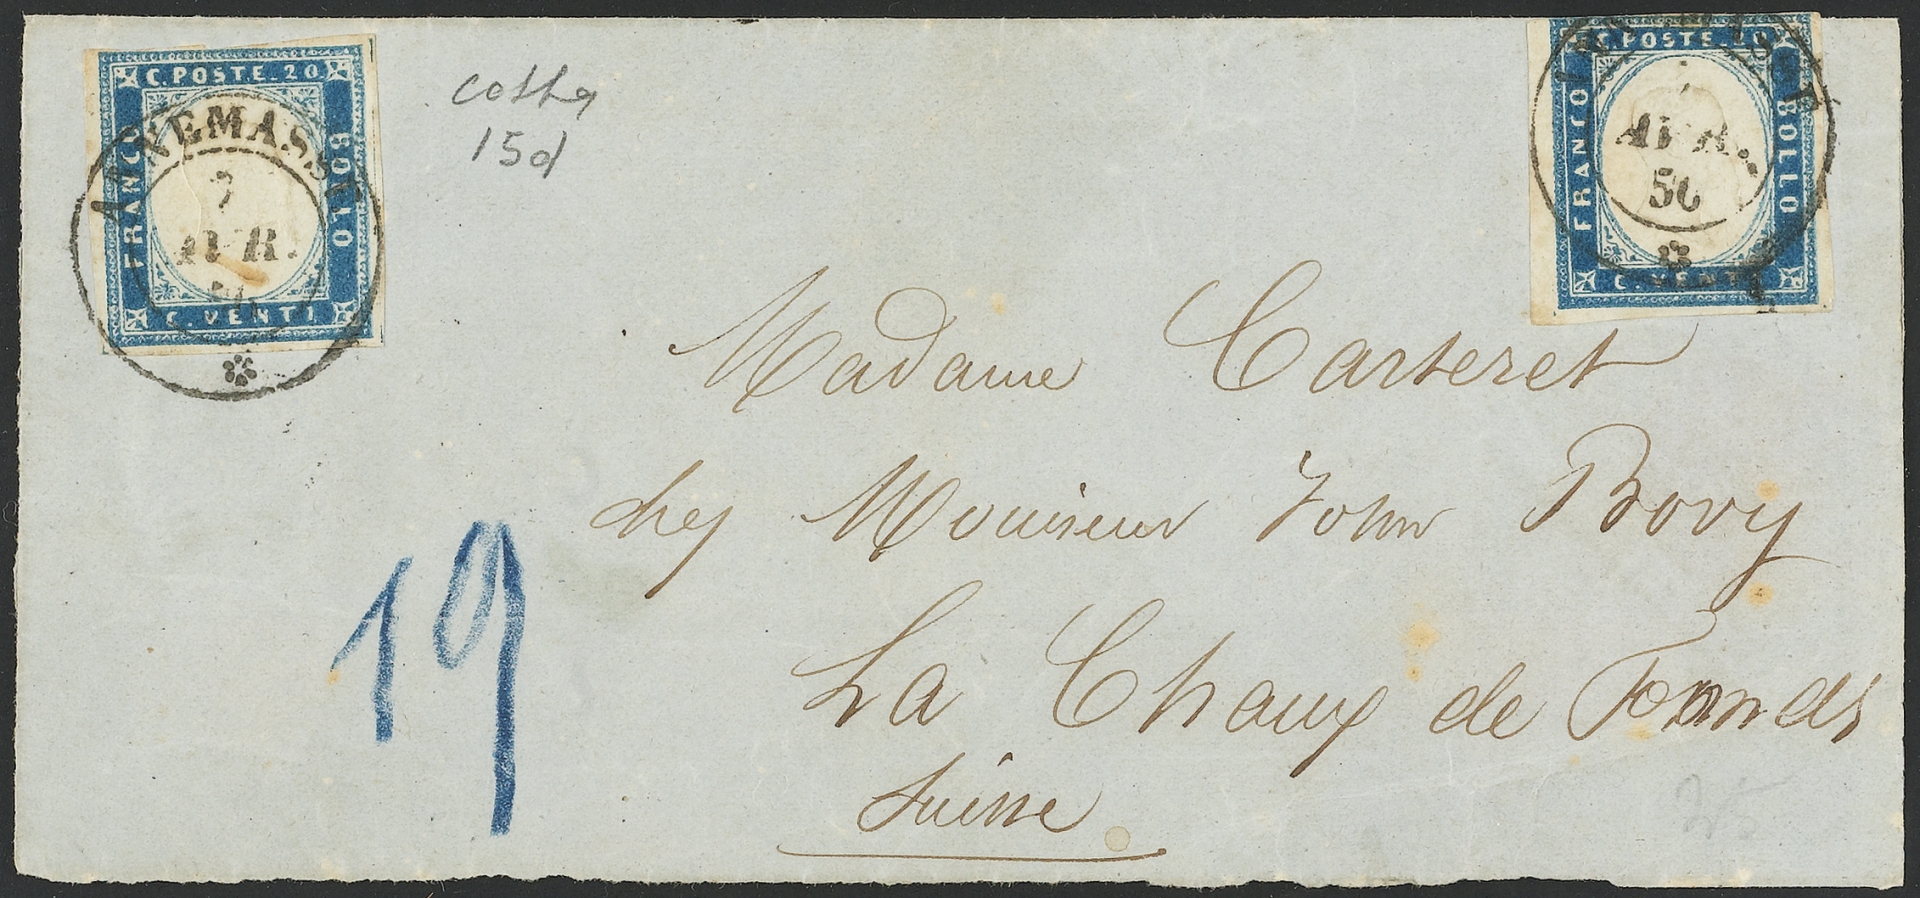 C. POSTE. 20
FRANCO
BOLLO
C. VENTI
ANNEMASSE
7
AVR.
cotta
15d
C. POSTE. 20
FRANCO
BOLLO
C. VENTI
7
AVR.
56
Madame Carteret
chez Monsieur John Bovy
La Chaux de Fonds
Suisse
19
25